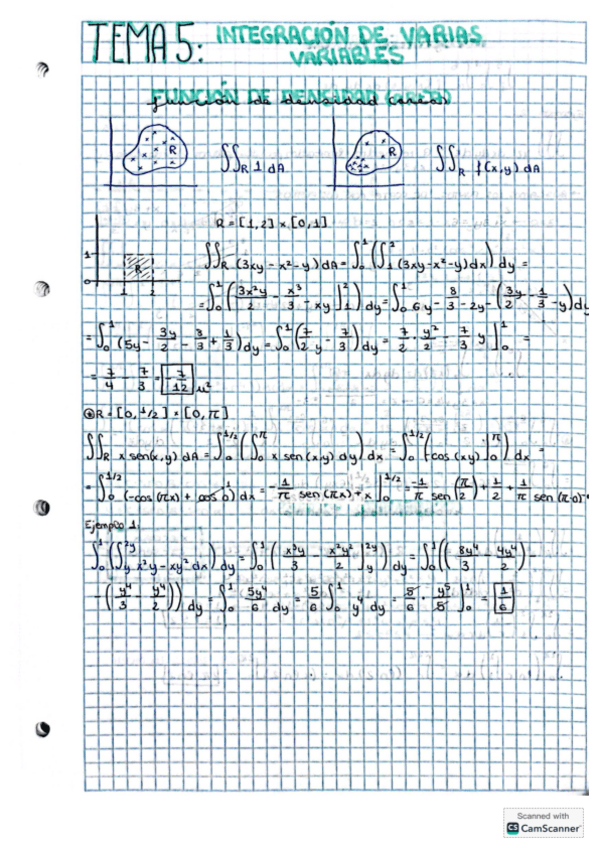 TEMA 5: INTEGRACIÓN DE VARIAS
VARIABLES
FUNCIÓN DE DENSIDAD (area)
R
∬_R 1 dA
R
∬_R f(x,y) dA
R = [1,2] × [0,1]
1
R
0
1 2
∬_R (3xy - x² - y) dA = ∫₀¹ (∫₁² (3xy - x² - y) dx) dy =
= ∫₀¹ (3x²y/2 - x³/3 - xy ]₁²) dy = ∫₀¹ 6y - 8/3 - 2y - (3y/2 - 1/3 - y) dy
= ∫₀¹ (5y - 3y/2 - 8/3 + 1/3) dy = ∫₀¹ (7/2 y - 7/3) dy = 7/2 · y²/2 - 7/3 y ]₀¹ =
= 7/4 - 7/3 = -7/12 u²
R = [0, 1/2] × [0, π]
∬_R x sen(x,y) dA = ∫₀^(1/2) (∫₀^π x sen(x,y) dy) dx = ∫₀^(1/2) (-cos(xy) ]₀^π) dx =
= ∫₀^(1/2) (-cos(πx) + cos 0) dx = -1/π sen(πx) + x ]₀^(1/2) = -1/π sen(π/2) + 1/2 + 1/π sen(π·0) -
Ejemplo 1:
∫₀¹ (∫_y^(2y) x²y - xy² dx) dy = ∫₀¹ (x³y/3 - x²y²/2 ]_y^(2y)) dy = ∫₀¹ ((8y⁴/3 - 4y⁴/2) -
- (y⁴/3 - y⁴/2)) dy = ∫₀¹ 5y⁴/6 dy = 5/6 ∫₀¹ y⁴ dy = 5/6 · y⁵/5 ]₀¹ = 1/6
Scanned with
CS CamScanner